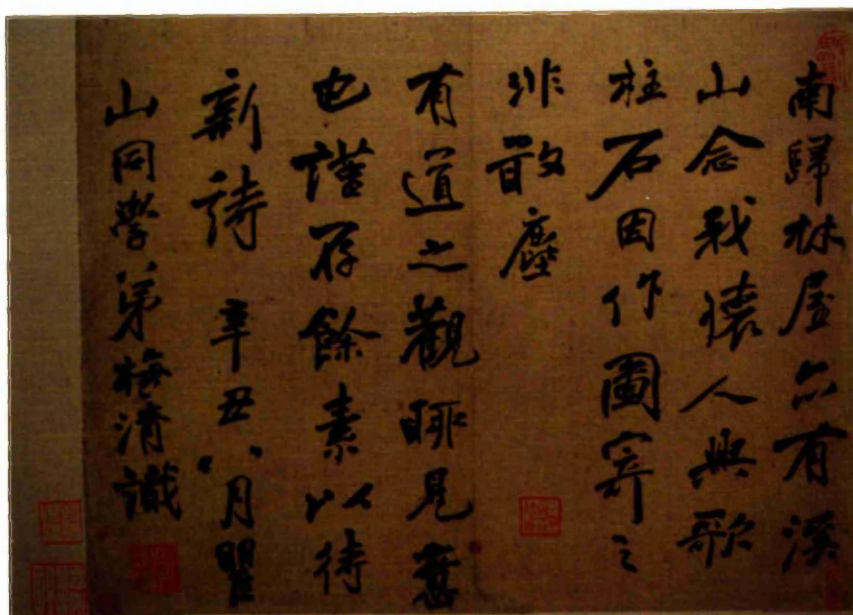 南歸林屋亦有溪
山念我懷人興歌
柱石因作圖寄之
非敢塵
有道之觀聊見意
也謹存餘素以待
新詩 辛丑八月瞿
山同學弟梅清識